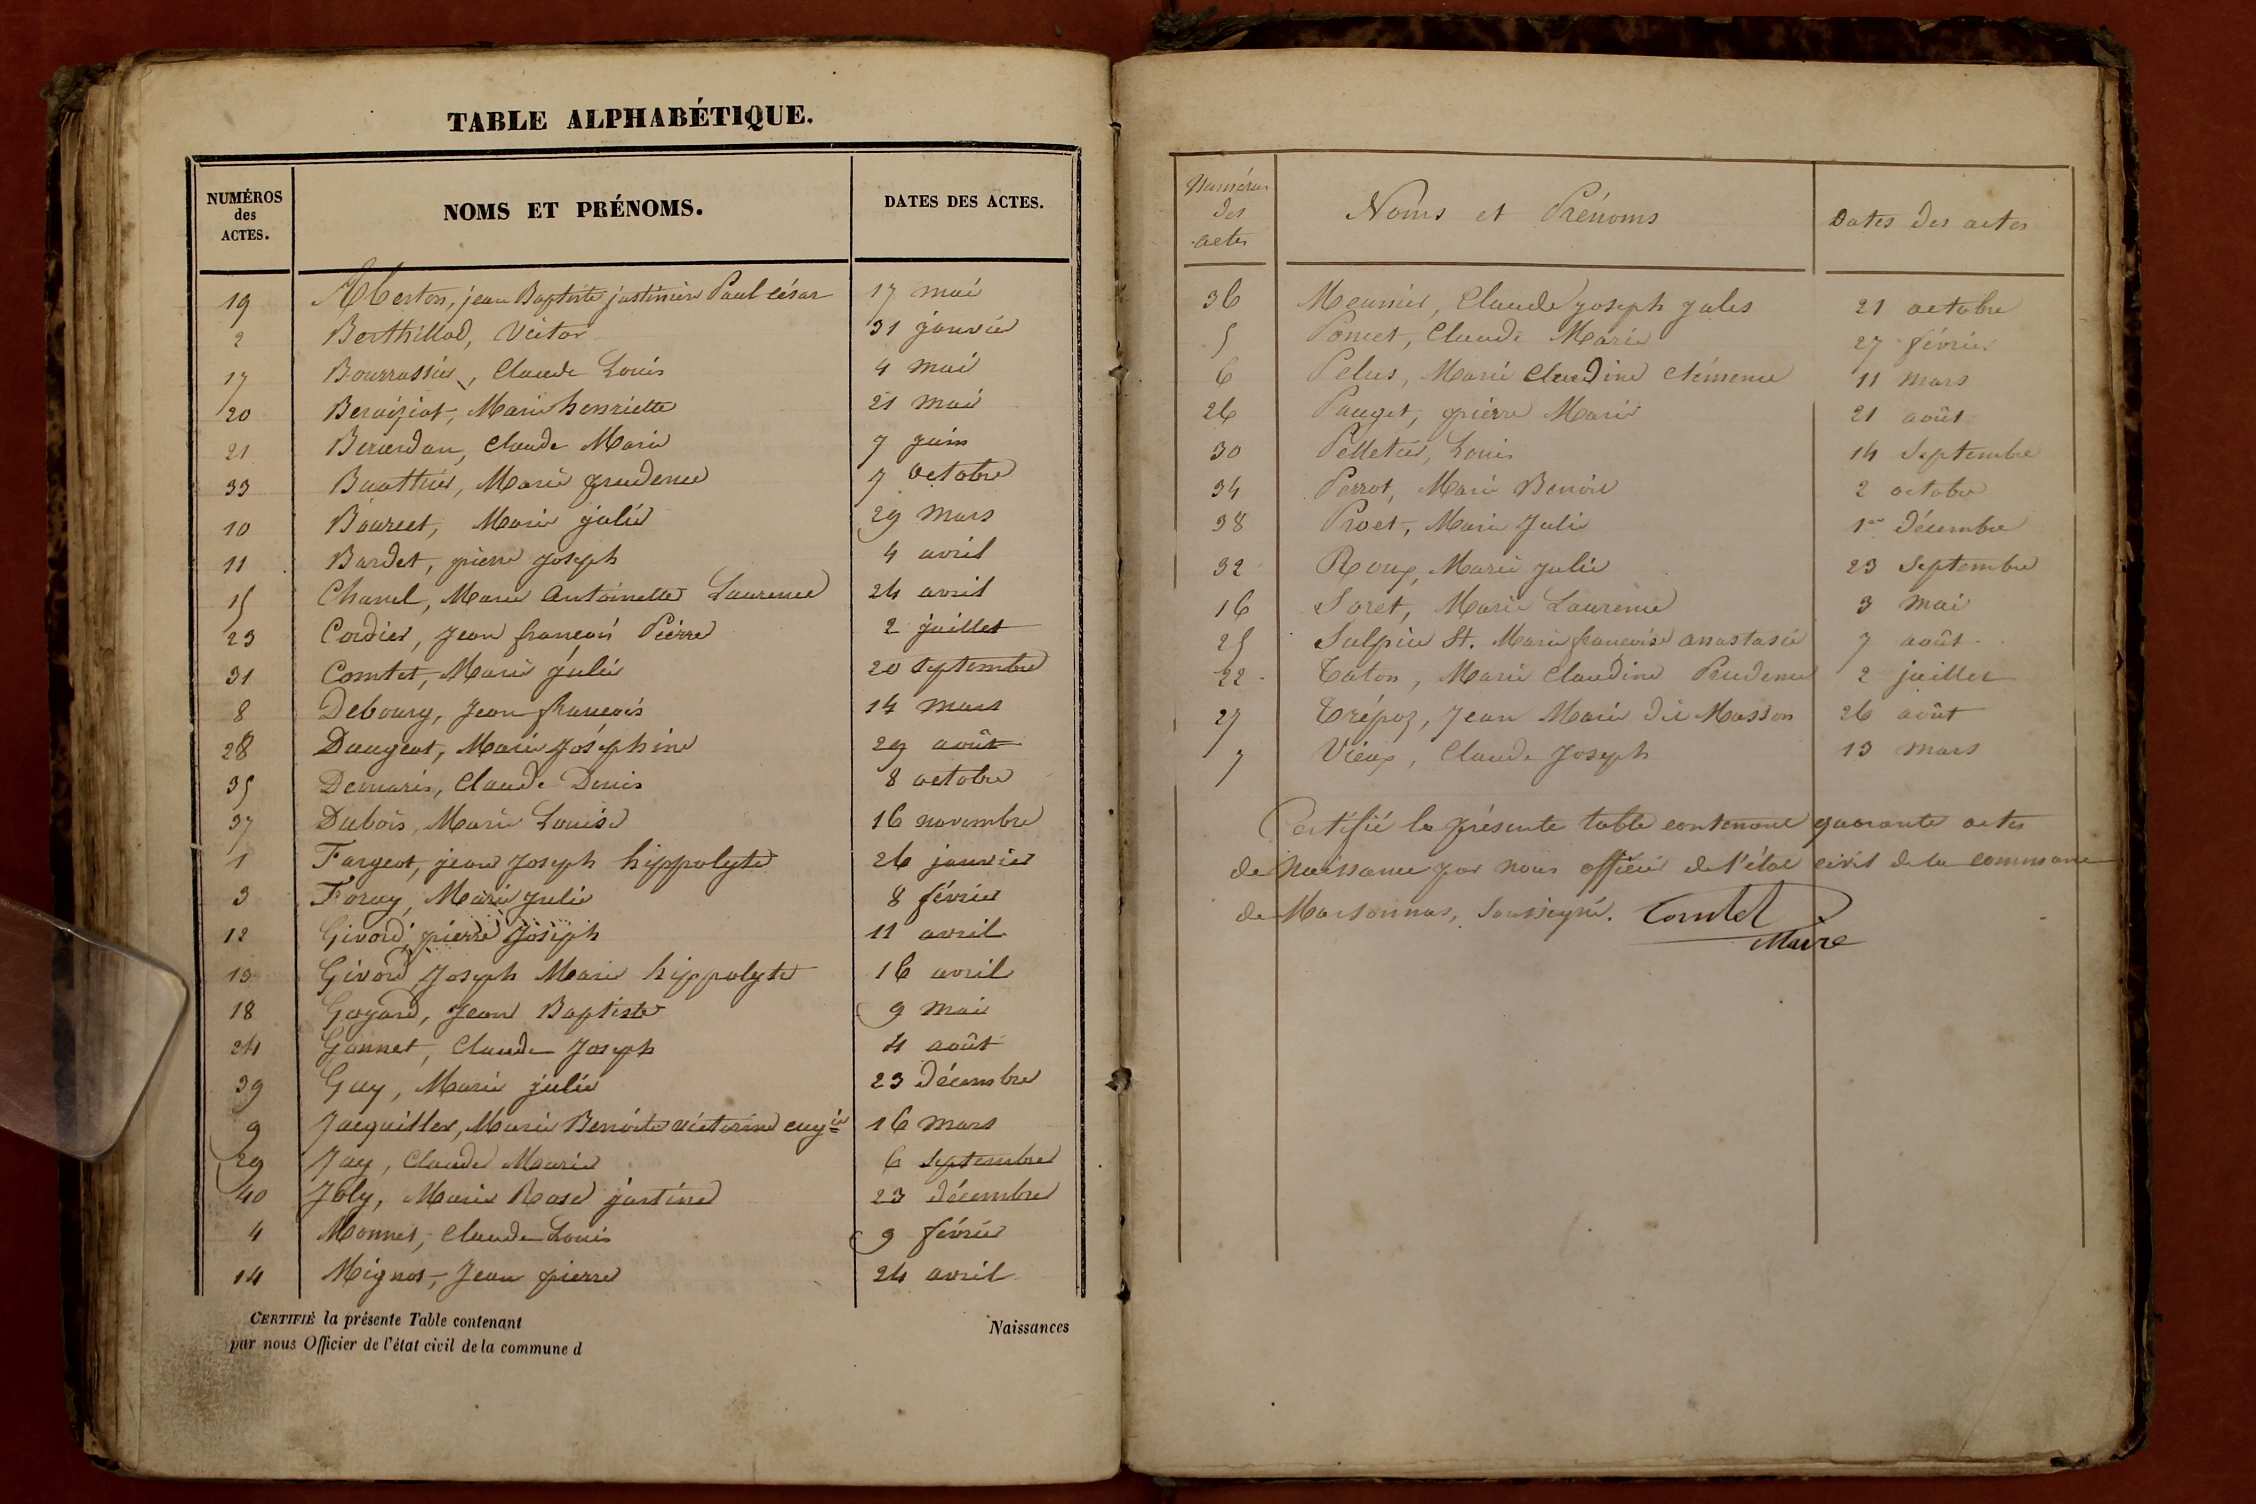 TABLE ALPHABÉTIQUE.
NUMÉROS des ACTES. NOMS ET PRÉNOMS. DATES DES ACTES.
19 Alberton, jean Baptiste justinien Paul césar 17 mai
2 Berthillod, Victor 31 janvier
17 Bourrassier, Claude Louis 4 mai
20 Beraiziat, Marie henriette 21 mai
21 Berardan, Claude Marie 7 juin
33 Buathier, Marie prudence 7 octobre
10 Bourcet, Marie julie 29 mars
11 Bardet, pierre Joseph 4 avril
15 Chanel, Marie Antoinette Laurence 24 avril
23 Cordier, Jean françois Pierre 2 juillet
31 Comtet, Marie Julie 20 septembre
8 Debourg, Jean françois 14 mars
28 Daujeat, Marie Joséphine 29 août
35 Demaris, Claude Denis 8 octobre
37 Dubois, Marie Louise 16 novembre
1 Fargeot, jean Joseph hippolyte 26 janvier
3 Foray, Marie Julie 8 février
12 Givord, pierre Joseph 11 avril
13 Givord, Joseph Marie hippolyte 16 avril
18 Goyard, Jean Baptiste 9 mai
24 Gonnet, Claude Joseph 4 août
39 Guy, Marie julie 23 décembre
9 Jacquiller, Marie Benoite victorine eugie 16 mars
29 Jay, Claude Marie 6 septembre
40 Joly, Marie Rose justine 23 décembre
4 Monnet, Claude Louis 9 février
14 Mignot, Jean pierre 24 avril
CERTIFIÉ la présente Table contenant Naissances
par nous Officier de l'état civil de la commune d
Numéros des actes Noms et Prénoms Dates des actes
36 Meunier, Claude joseph Jules 21 octobre
5 Poncet, Claude Marie 27 février
6 Pelus, Marie Claudine clémence 11 mars
26 Pauget, pierre Marie 21 août
30 Pelletier, Louis 14 Septembre
34 Perrot, Marie Benoite 2 octobre
38 Proet, Marie Julie 1er décembre
32 Roux, Marie julie 23 septembre
16 Soret, Marie Laurence 3 mai
25 Sulpice St. Marie françoise anastasie 7 août
22 Caton, Marie Claudine Prudence 2 juillet
27 Trépoz, Jean Marie dit Masson 26 août
7 Vieux, Claude Joseph 13 mars
Certifié la présente table contenant quarante actes
de Naissance par nous officier de l'état civil de la commune
de Marsonnas, soussigné. Comtet
Maire